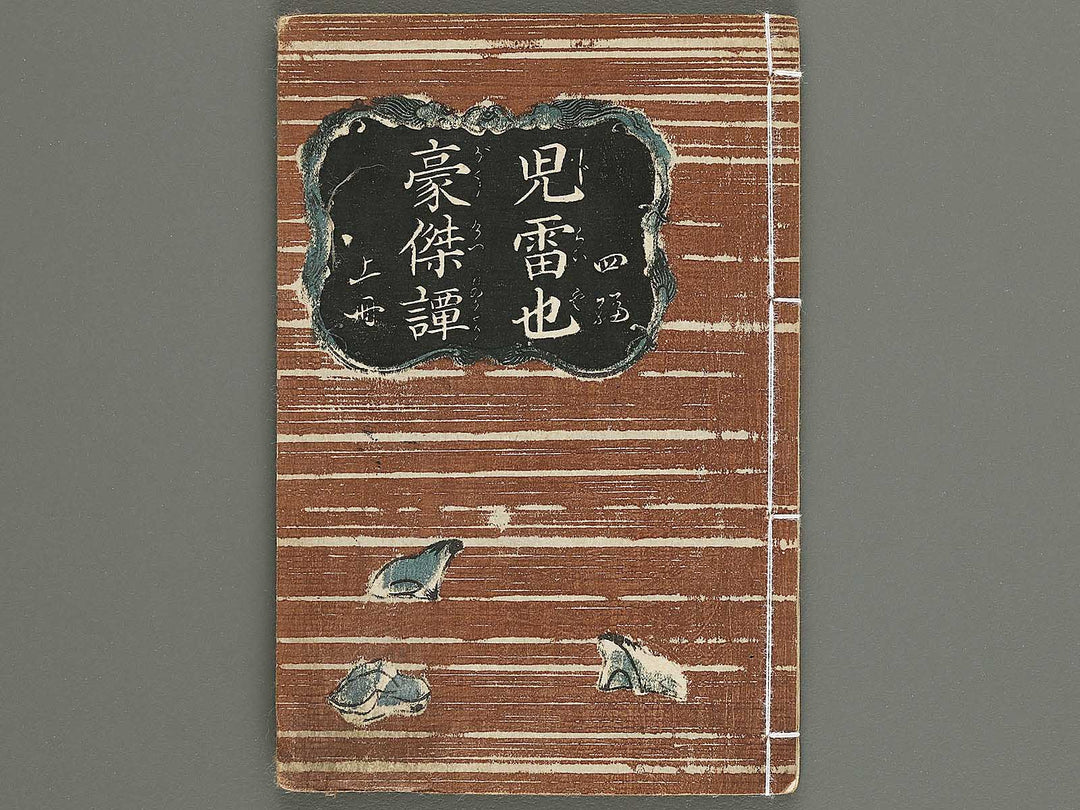 四編
児雷也
豪傑譚
上冊